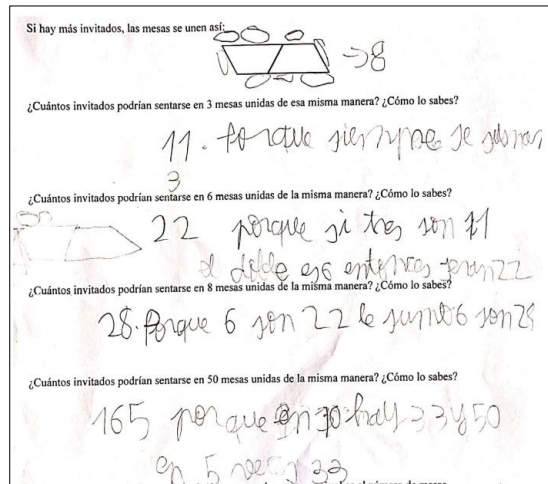 Si hay más invitados, las mesas se unen así:
→8
¿Cuántos invitados podrían sentarse en 3 mesas unidas de esa misma manera? ¿Cómo lo sabes?
11. Porque siempre se
3
¿Cuántos invitados podrían sentarse en 6 mesas unidas de la misma manera? ¿Cómo lo sabes?
22 porque si tres son 11
el doble es 6 entonces seran 22
¿Cuántos invitados podrían sentarse en 8 mesas unidas de la misma manera? ¿Cómo lo sabes?
28. Porque 6 son 22 le sumo 6 son 28
¿Cuántos invitados podrían sentarse en 50 mesas unidas de la misma manera? ¿Cómo lo sabes?
165 porque en 10 hay 33 y 50
en 5 veces 33